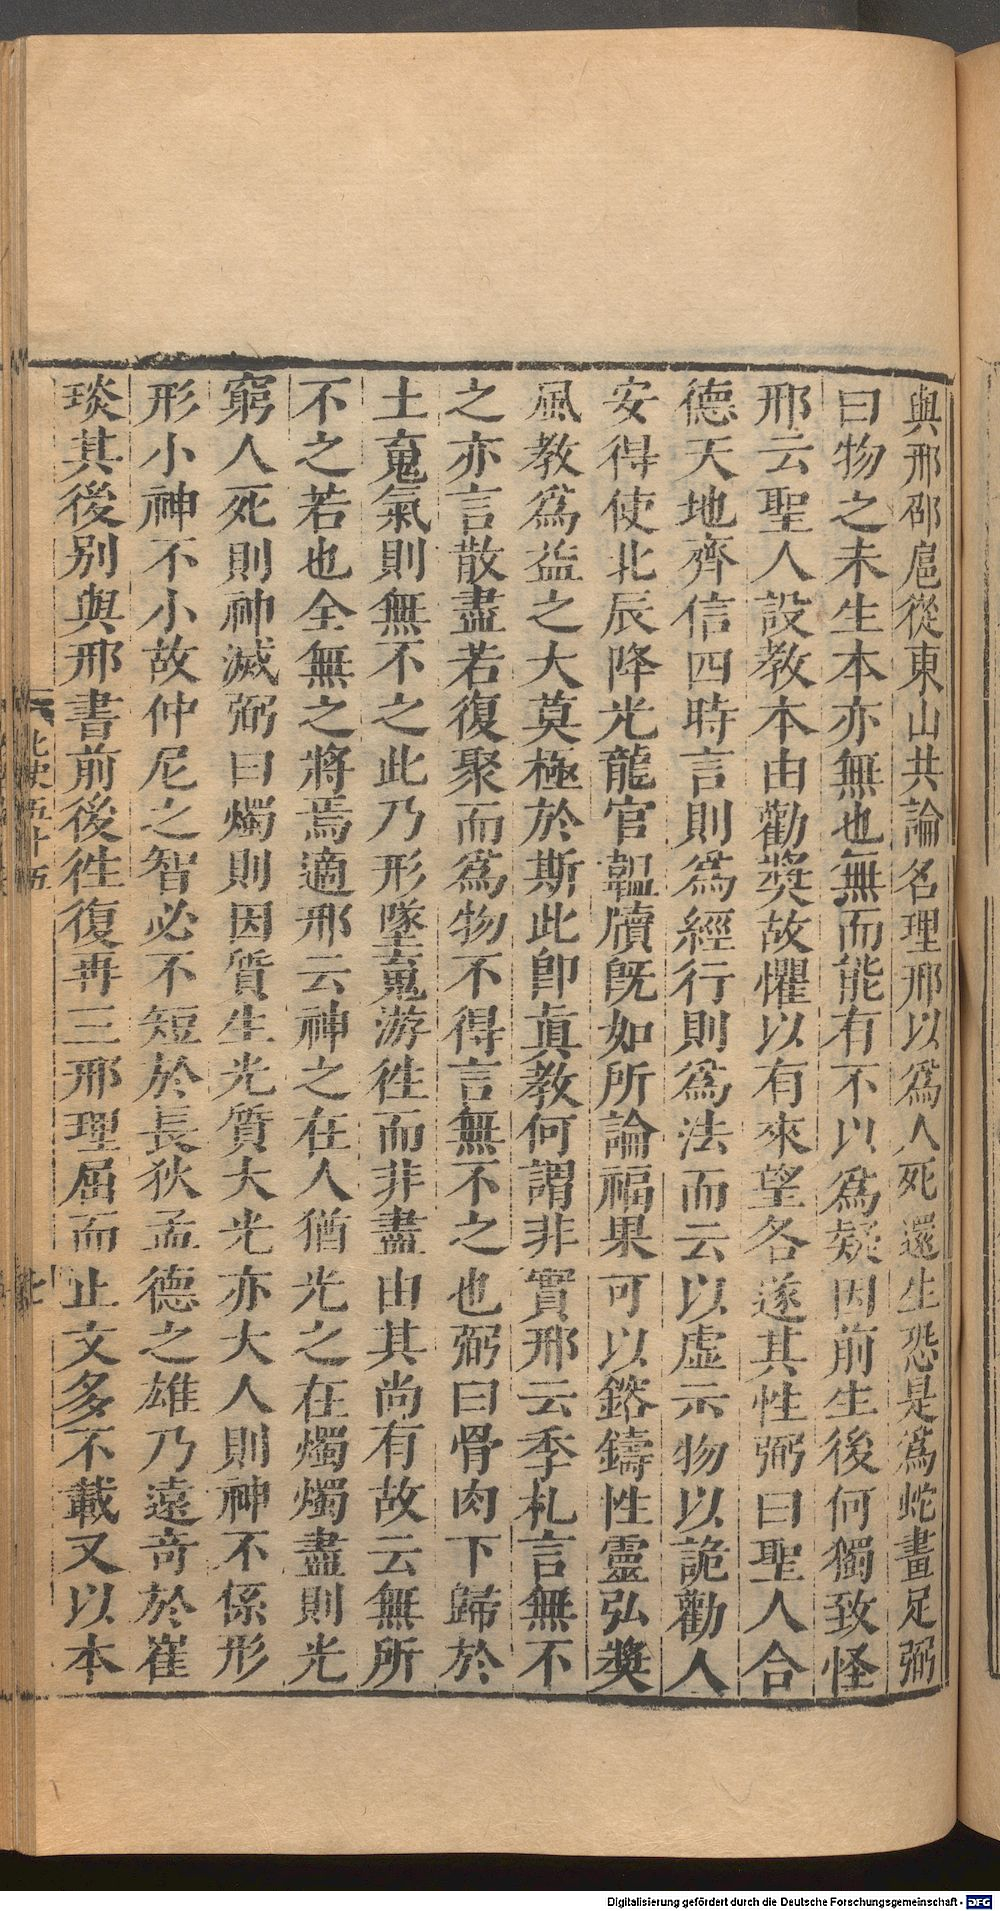 與邢卲扈從東山共論名理邢以爲人死還生恐是爲蛇畫足弼
曰物之未生本亦無也無而能有不以爲疑因前生後何獨致怪
邢云聖人設教本由勸奬故懼以有來望各遂其性弼曰聖人合
德天地齊信四時言則爲經行則爲法而云以虛示物以詭勸人
安得使北辰降光龍官韞牘旣如所論福果可以鎔鑄性靈弘奬
風教爲益之大莫極於斯此卽眞教何謂非實邢云季札言無不
之亦言散盡若復聚而爲物不得言無不之也弼曰骨肉下歸於
土䰟氣則無不之此乃形墜䰟游徃而非盡由其尚有故云無所
不之若也全無之將焉適邢云神之在人猶光之在燭燭盡則光
窮人死則神滅弼曰燭則因質生光質大光亦大人則神不係形
形小神不小故仲尼之智必不短於長狄孟德之雄乃遠奇於崔
琰其後别與邢書前後徃復再三邢理屈而止文多不載又以本
北史五十五
七
Digitalisierung gefördert durch die Deutsche Forschungsgemeinschaft - DFG